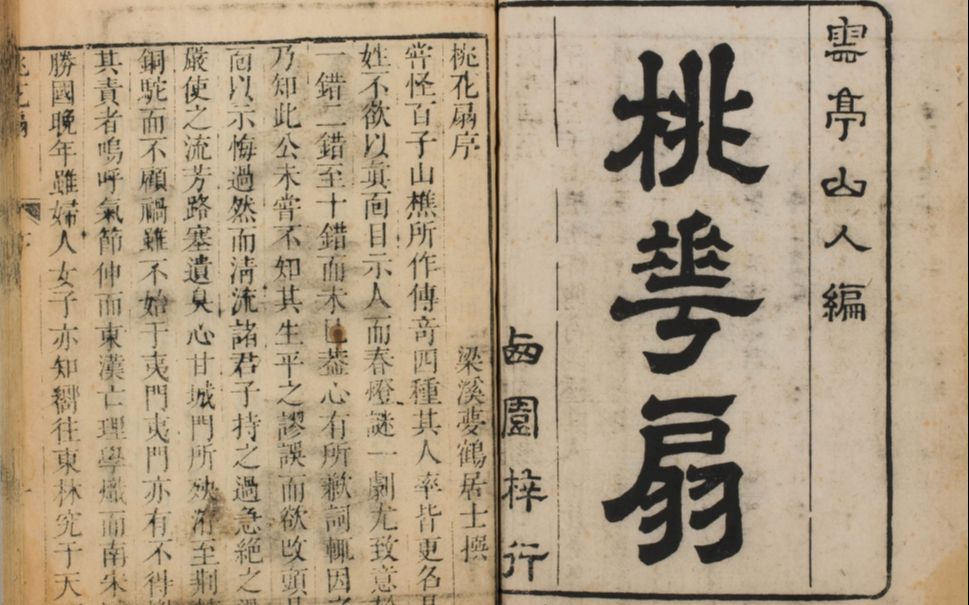 雲亭山人編
桃華扇
西園梓行
桃花扇序
梁溪夢鶴居士撰
嘗怪百子山樵所作傳奇四種其人率皆更名
姓不欲以真面目示人而春燈謎一劇尤致意
一錯二錯至十錯而未已蓋心有所歉詞輒因之
乃知此公未嘗不知其生平之謬誤而欲改頭
而以示悔過然而清流諸君子持之過急絶之
嚴使之流芳路塞遺臭心甘城門所殃洊至荆
銅駝而不顧禍雖不始于夷門夷門亦有不得
其責者嗚呼氣節伸而東漢亡理學熾而南宋
勝國晚年雖婦人女子亦知嚮往東林究于天
桃花扇